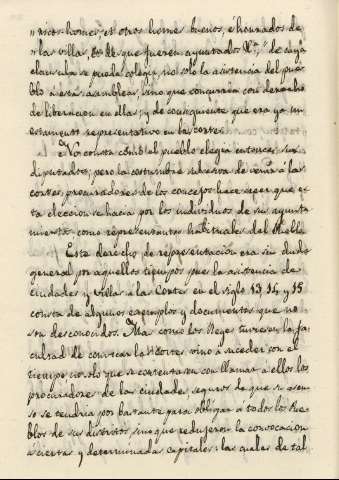 "ricos homes, et otros homes buenos, é honrados de
"las villas, &a. de que fueren ayuntados &a." de cuya
clausula se puede colegir, no solo la asistencia del pue-
blo á estas asambleas, sino que concurria con derecho
de liberacion en ellas, y de consiguiente que era ya un
estamento representativo en las cortes.
No consta como el pueblo elegia entonces sus
diputados; pero la costumbre subcesiva de venir á las
cortes procuradores de los concejos hace creer que es-
ta eleccion se hacia por los individuos de su ayunta
miento como representantes habituales del Pueblo.
Este derecho de representación era sin duda
general por aquellos tiempos pues la asistencia de
ciudades y Villas á las Cortes en el siglo 13, 14 y 15
consta de algunos exemplos y documentos que no
son desconocidos. Mas como los Reyes tuviesen la fa-
cultad de convocar las Cortes vino á suceder con el
tiempo no solo que se contentasen con llamar á ellos los
procuradores de las ciudades, seguros de que su asen-
so se tendria por bastante para obligar á todos los Pue-
blos de sus distritos, sino que redujeron la convocacion
a ciertas y determinadas capitales: las cuales de tal